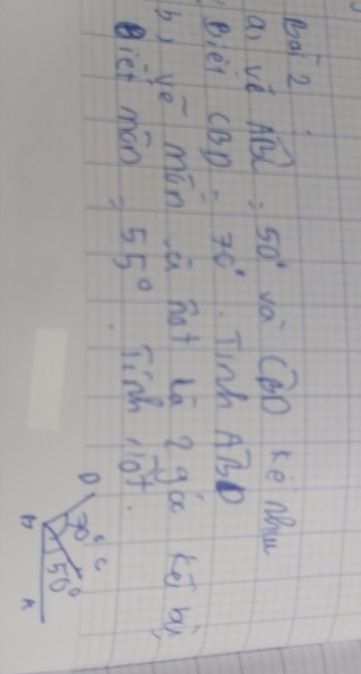 Bài 2
a) vẽ ABC = 50° và CBD kề nhau
Biết CBD = 70°. Tính ABD
b) vẽ mÔn và nOt là 2 góc kề bù
Biết mÔn = 55°. Tính nOt.
D
70°
C
B
50°
A